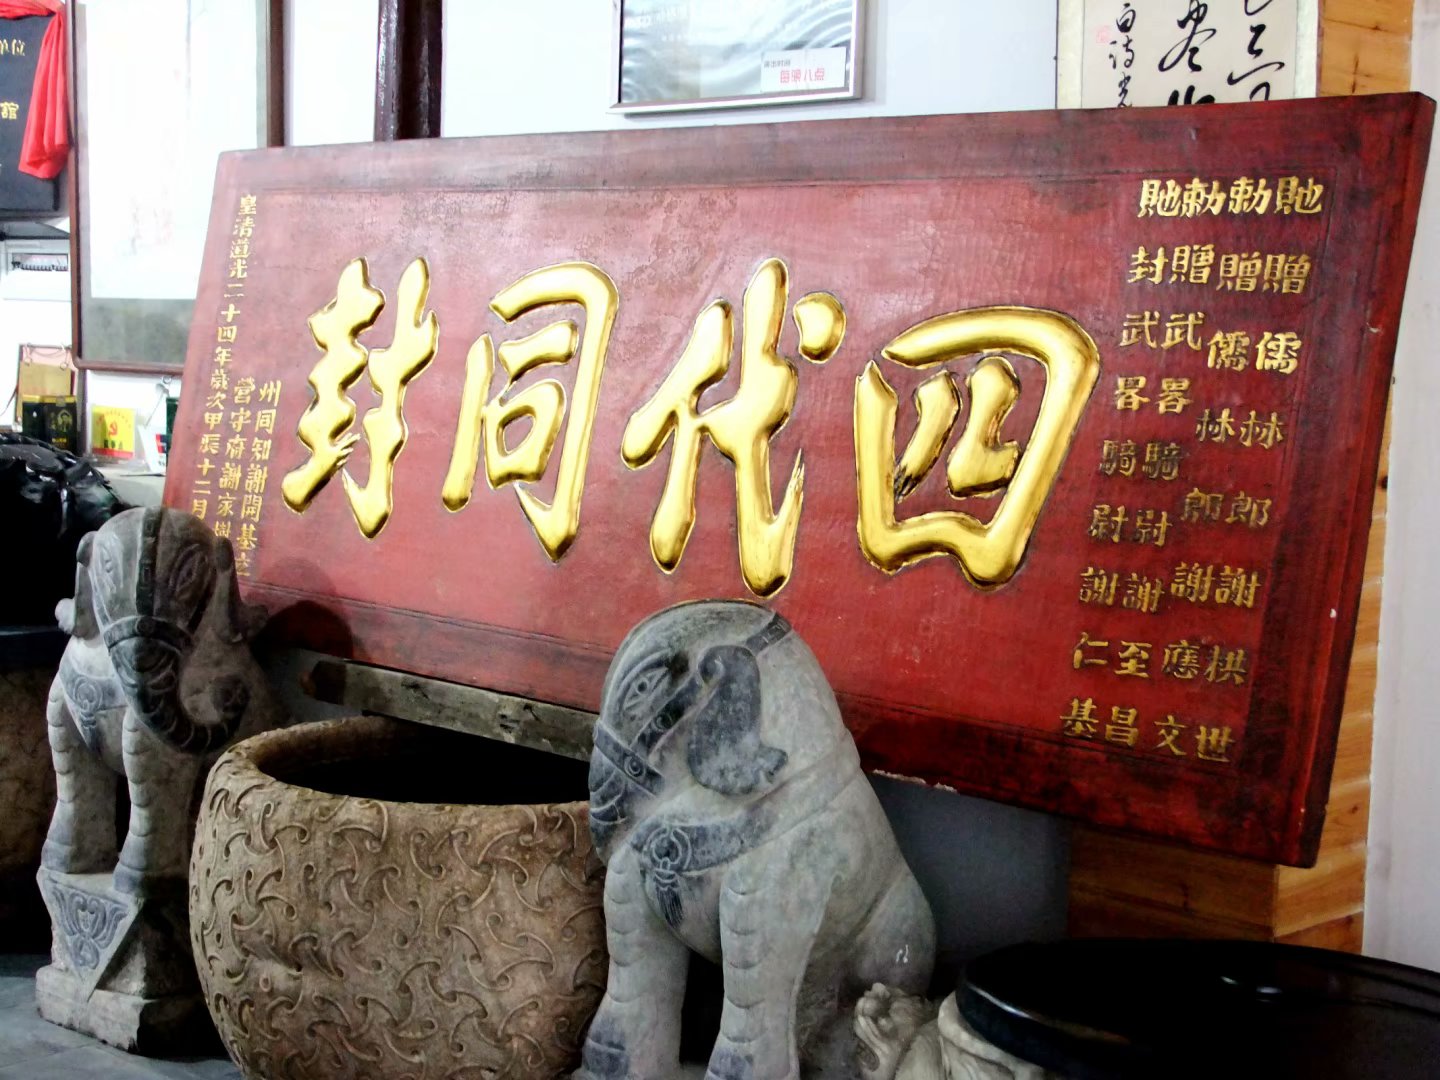 四代同封
貤贈儒林郎謝栱世
勅贈儒林郎謝應文
勅贈武畧騎尉謝至昌
貤封武畧騎尉謝仁基
州同知謝開基立
營守府謝家樹
皇清道光二十四年歲次甲辰十二月
演出时间
每晚八点
白诗
单位
館